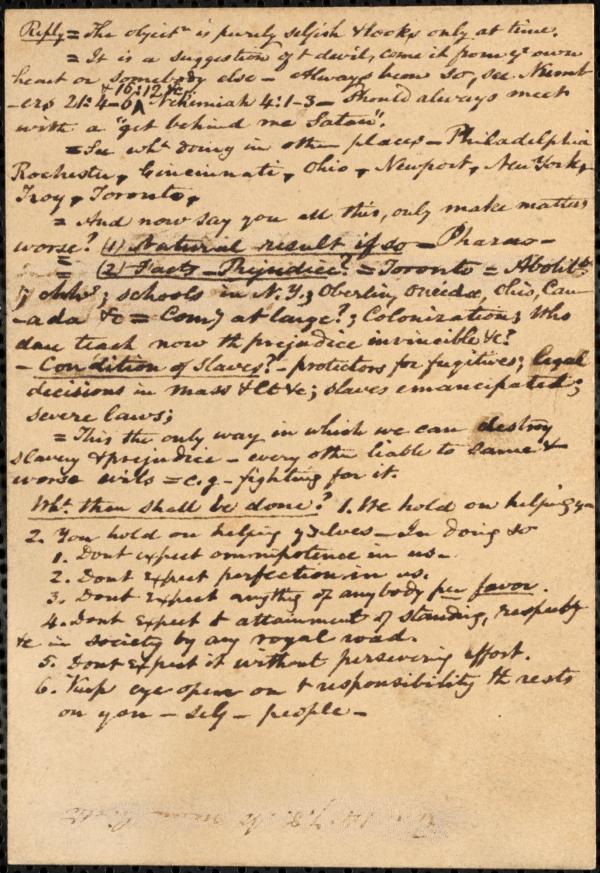 Reply = The object.n is purely selfish & looks only at time.
= It is a suggestion of t devil, come it from yr own
heart or somebody else - Always been so, see Numb
& 16:12 &c;
-ers 21:4-6, Nehemiah 4:1-3 - Should always meet
with a "get behind me Satan".
= See wht. doing in other places - Philadelphia
Rochester, Cincinnati, Ohio, Newport, New York,
Troy, Toronto,
= And now say you all this, only make matters
worse? (1) Natural result if so - Pharao -
= (2) Facts - Prejudice? = Toronto = Abolit.n
; schools in N.Y.; Oberlin, Oneida, Ohio, Can-
-ada &c = Comy at large?; Colonization; Who
dare teach now th prejudice invincible &c?
- Condition of slaves? - protectors for fugitives; legal
decisions in Mass & Ct &c; slaves emancipated;
severe laws;
= This the only way in which we can destroy
slavery & prejudice - every other liable to same &
worse evils = e.g - fighting for it.
Wht. then shall be done? 1. We hold on helping y-
2. You hold on helping yrselves - In doing so
1. Dont expect omnipotence in us -
2. Dont expect perfection in us.
3. Dont expect anythg of anybody per favor.
4. Dont expect t attainment of standing, respecty
&c in society by any royal road.
5. Dont expect it without persevering effort.
6. Keep eye open on t responsibility th rests
on you - self - people -